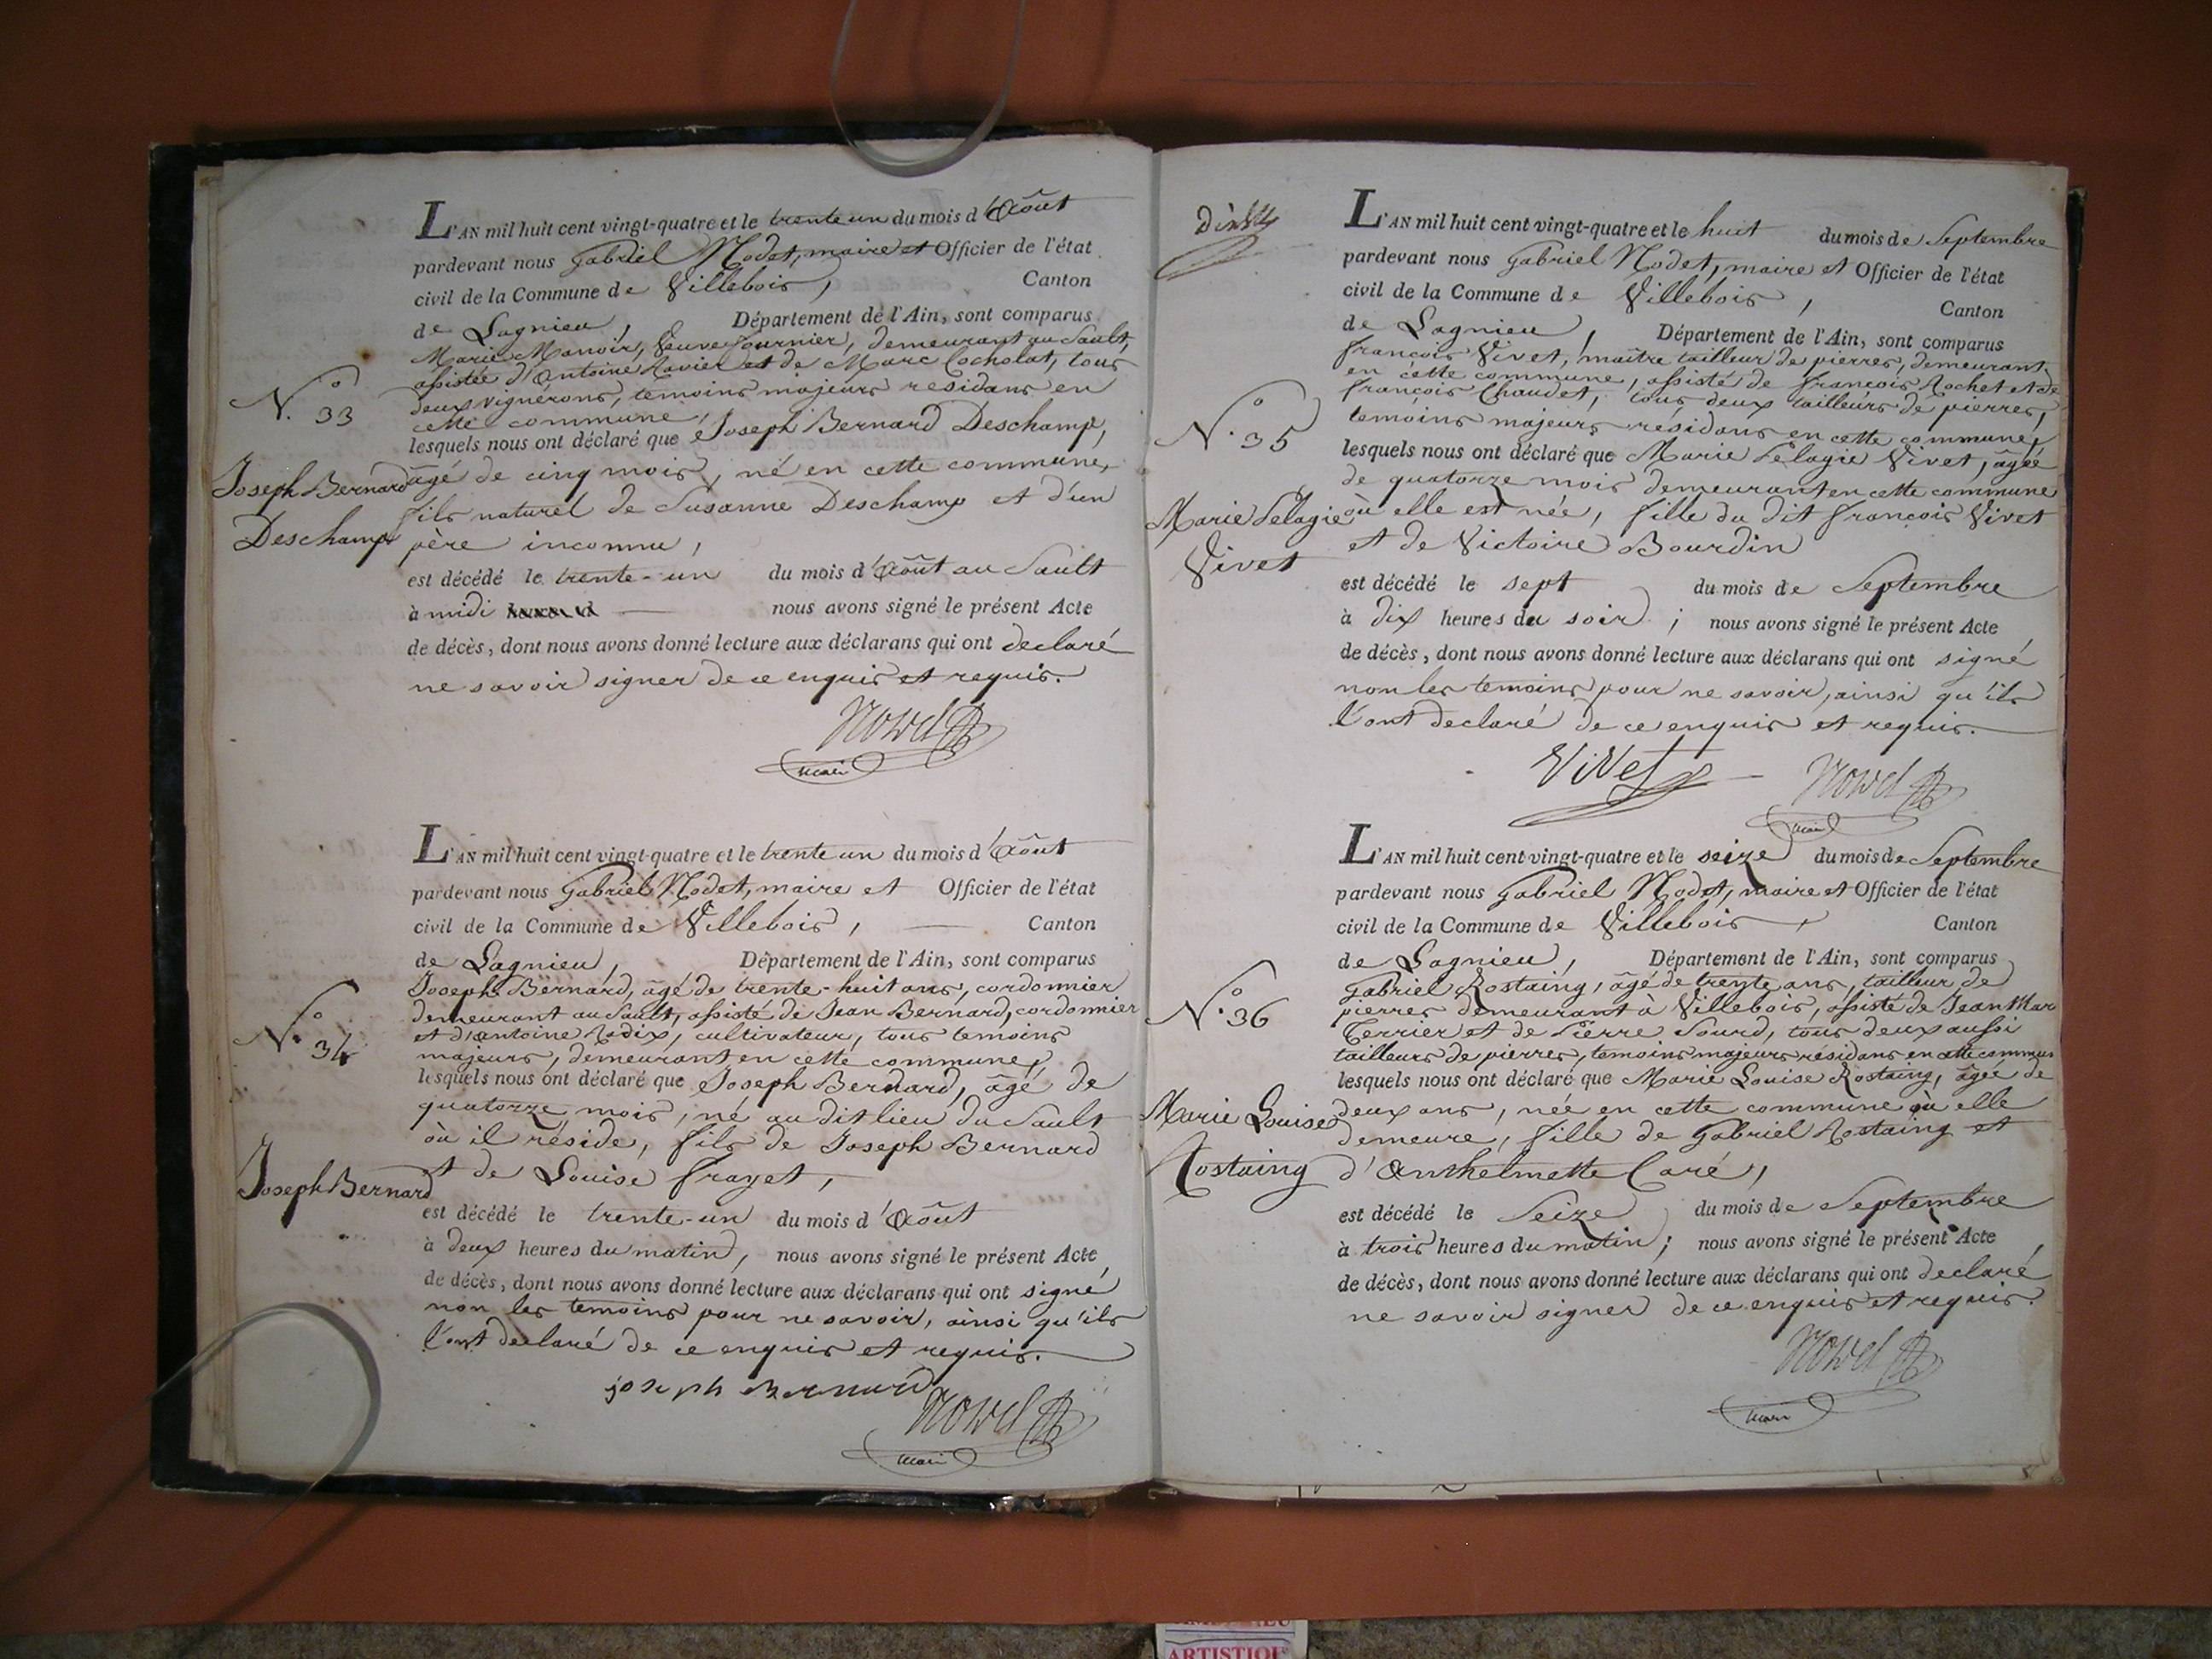 N.o 33
Joseph Bernard
Deschamp
L'AN mil huit cent vingt-quatre et le trente un du mois d'Août
pardevant nous Gabriel Nodet, maire et Officier de l'état
civil de la Commune de Villebois, Canton
de Lagnieu, Département de l'Ain, sont comparus
Marie Manoir, veuve fournier, demeurant au Sault,
assistée d'Antoine Ravier et de Marc Cocholat, tous
deux vignerons, temoins majeurs residans en
cette commune,
lesquels nous ont déclaré que Joseph Bernard Deschamp,
âgé de cinq mois, né en cette commune,
fils naturel de Susanne Deschamp et d'un
père inconnu,
est décédé le trente-un du mois d'Août au Sault
à midi nous avons signé le présent Acte
de décès, dont nous avons donné lecture aux déclarans qui ont declaré
ne savoir signer de ce enquis et requis.
Nodet
maire
N.o 34
Joseph Bernard
L'AN mil huit cent vingt-quatre et le trente un du mois d'Août
pardevant nous Gabriel Nodet, maire et Officier de l'état
civil de la Commune de Villebois, Canton
de Lagnieu, Département de l'Ain, sont comparus
Joseph Bernard, âgé de trente-huit ans, cordonnier
demeurant au Sault, assisté de Jean Bernard, cordonnier
et d'antoine Radix, cultivateur, tous temoins
majeurs, demeurant en cette commune,
lesquels nous ont déclaré que Joseph Bernard, âgé de
quatorze mois, né au dit lieu du Sault
où il réside, fils de Joseph Bernard
et de Louise frayet,
est décédé le trente-un du mois d'Août
à deux heures du matin, nous avons signé le présent Acte
de décès, dont nous avons donné lecture aux déclarans qui ont signé
non les temoins pour ne savoir, ainsi qu'ils
l'ont declaré de ce enquis et requis.
joseph Bernard
Nodet
maire
N.o 35
Marie Pelagie
Vivet
L'AN mil huit cent vingt-quatre et le huit du mois de Septembre
pardevant nous Gabriel Nodet, maire et Officier de l'état
civil de la Commune de Villebois, Canton
de Lagnieu, Département de l'Ain, sont comparus
françois Vivet, maître tailleur de pierres, demeurant
en cette commune, assisté de françois Rochet et de
françois Chaudet, tous deux tailleurs de pierres,
temoins majeurs résidans en cette commune,
lesquels nous ont déclaré que Marie Pelagie Vivet, âgée
de quatorze mois demeurant en cette commune
où elle est née, fille du dit françois Vivet
et de Victoire Bourdin
est décédé le sept du mois de Septembre
à dix heures du soir ; nous avons signé le présent Acte
de décès, dont nous avons donné lecture aux déclarans qui ont signé
non les temoins pour ne savoir, ainsi qu'ils
l'ont declaré de ce enquis et requis.
Vivet
Nodet
maire
N.o 36
Marie Louise
Rostaing
L'AN mil huit cent vingt-quatre et le seize du mois de Septembre
pardevant nous Gabriel Nodet, maire et Officier de l'état
civil de la Commune de Villebois, Canton
de Lagnieu, Département de l'Ain, sont comparus
Gabriel Rostaing, âgé de trente ans, tailleur de
pierres demeurant à Villebois, assisté de Jean Mar
Terrier et de Pierre Sourd, tous deux aussi
tailleurs de pierres, temoins majeurs résidans en cette commun
lesquels nous ont déclaré que Marie Louise Rostaing, âgée de
deux ans, née en cette commune où elle
demeure, fille de Gabriel Rostaing et
d'Anthelmette Caré,
est décédé le Seize du mois de Septembre
à trois heures du matin ; nous avons signé le présent Acte
de décès, dont nous avons donné lecture aux déclarans qui ont declaré
ne savoir signer de ce enquis et requis.
Nodet
maire